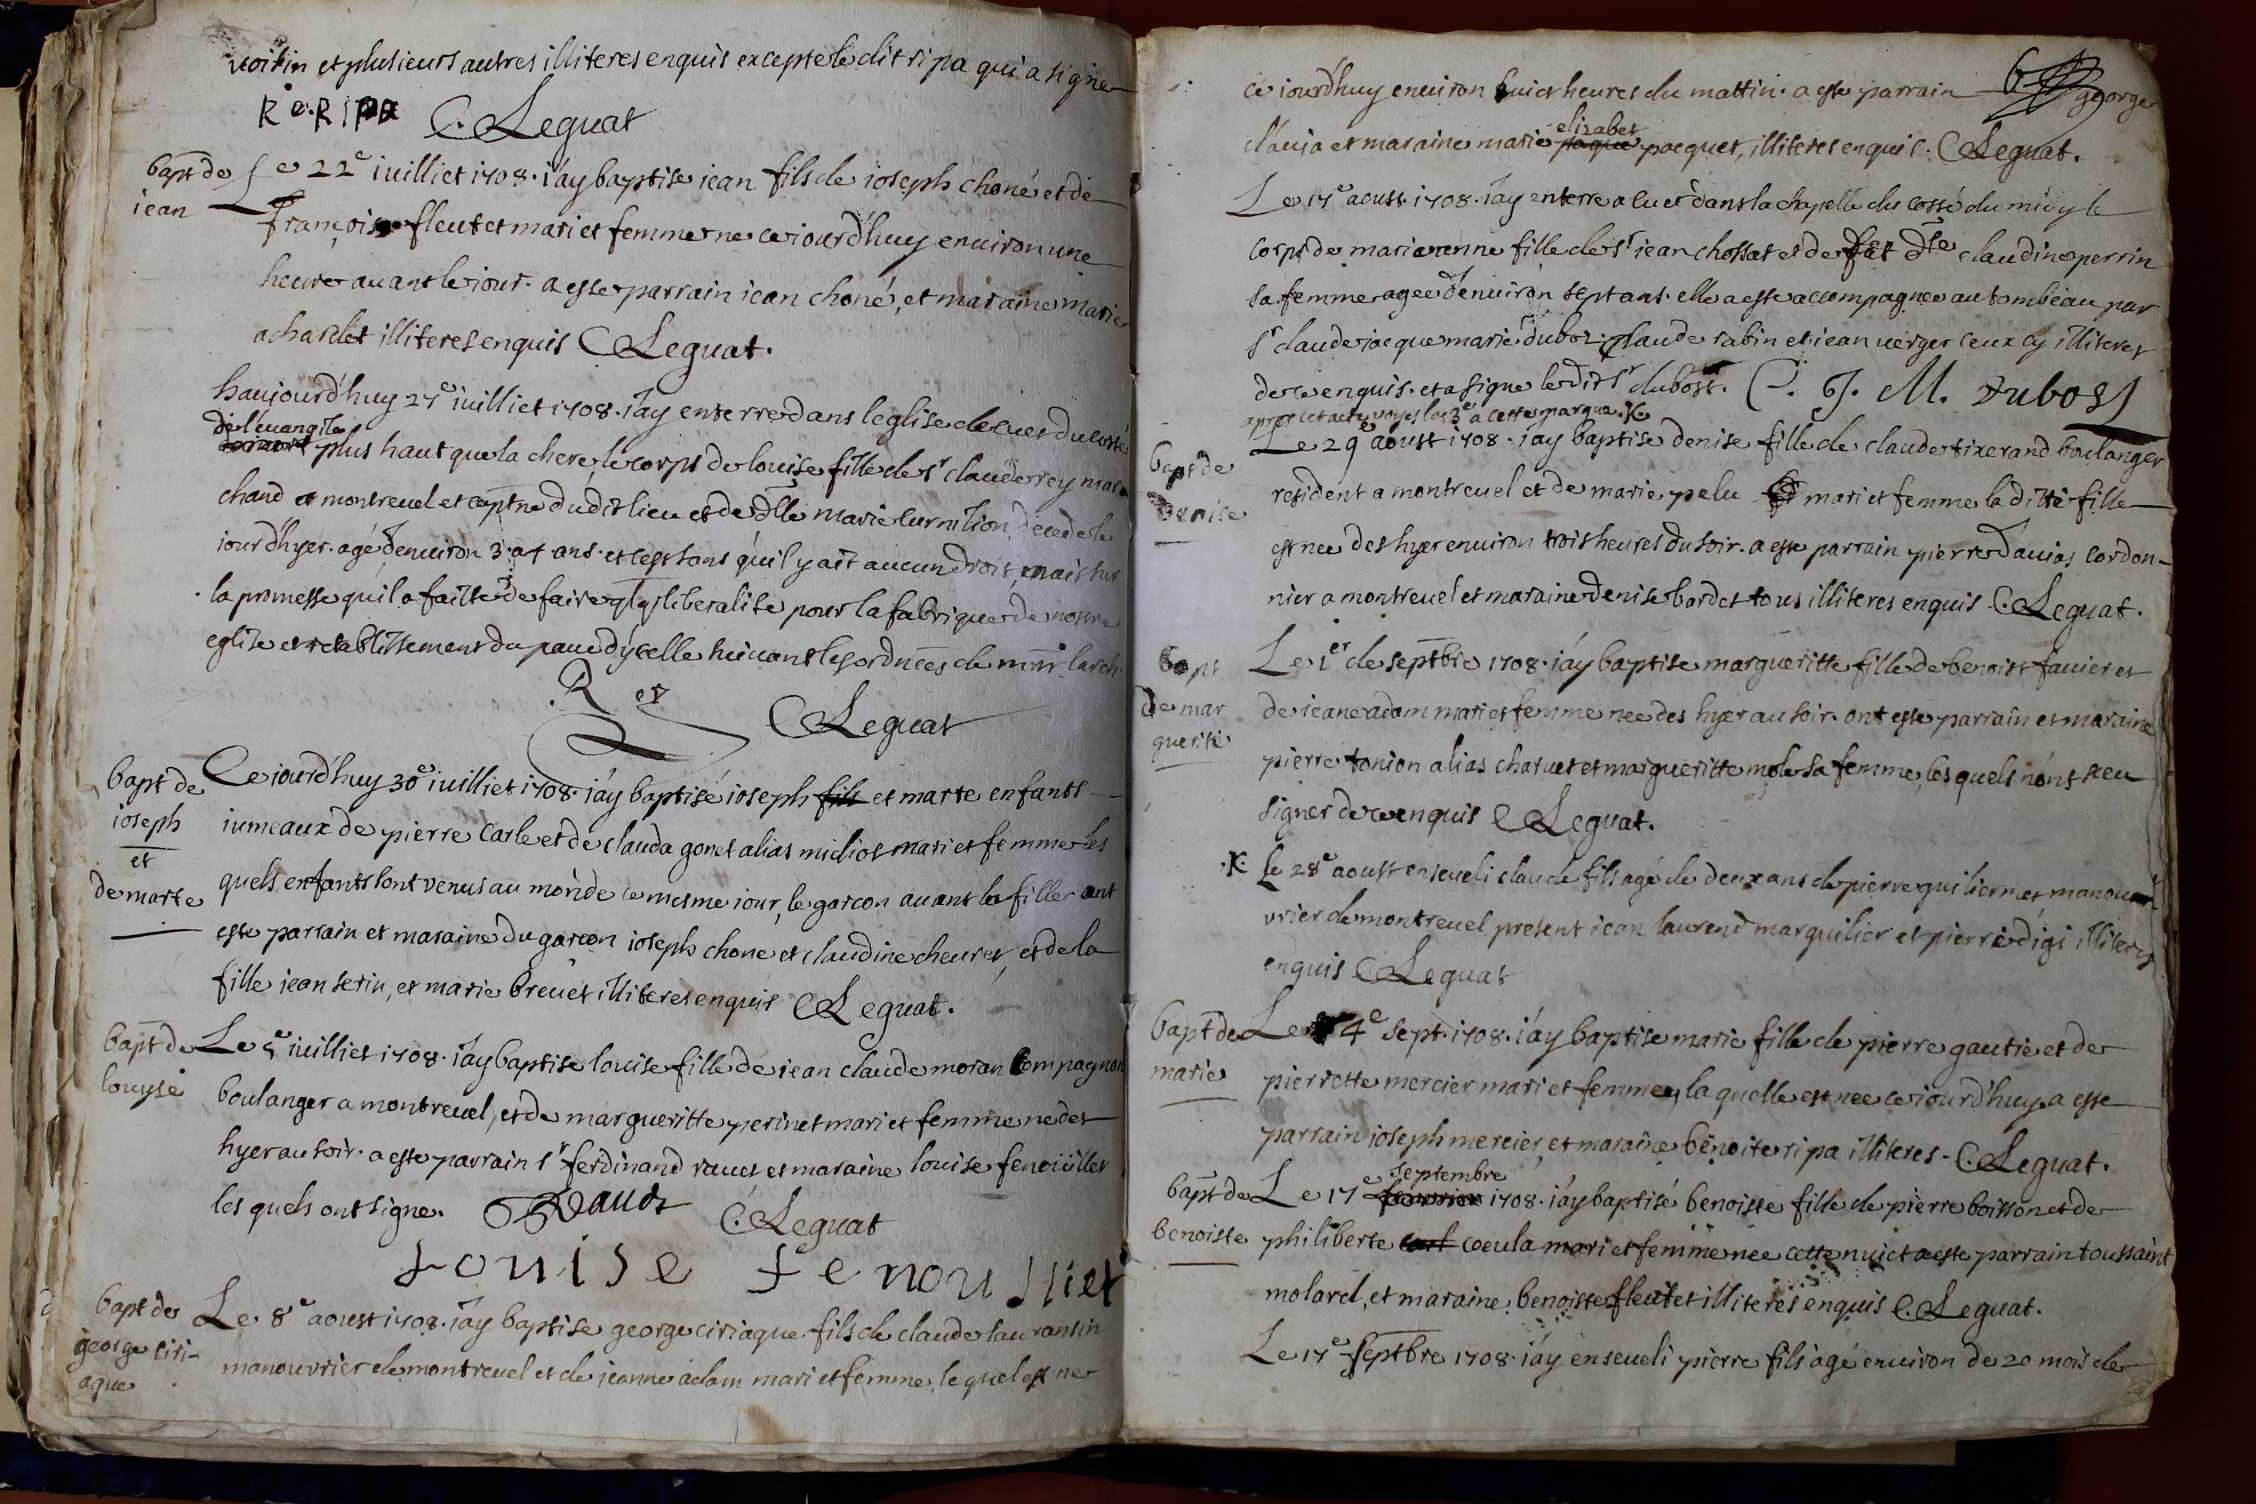 voisin et plusieurs autres illiteres enquis excepte le dit ripa qui a signe
R e. Ripa C. Leguat
bapt de
iean
Le 22e iuilliet 1708. i'ay baptise iean fils de ioseph choné et de
françoise fleutet mari et femme ne ce iourd'huy environ une
heure avant le iour. a este parrain iean choné, et maraine marie
achardet illiteres enquis C Leguat.
haujourd'huy 27e iuilliet 1708. i'ay enterre dans l'eglise de cuet du costé
de l'euangile
plus haut que la chere le corps de louise fille de sr claude rey mar
chand a montreuel et captne dudit lieu et de dlle marie curnilion, decede le
iour d'hyer. agé d'enuiron 3. a 4 ans. et c'est sans qu'il y ait aucun droit, mais sur
la promesse qu'il a faitte de faire qlq liberalite pour la fabrique de nostre
eglise et retablissement du pavé d'ycelle suivant les ordnces de mr l'arch.
Rey
C Leguat
bapt de
ioseph
et
de marte
Ce iourd'huy 30e iuilliet 1708. i'ay baptisé ioseph fils et marte enfants
iumeaux de pierre carle et de clauda gonet alias midiot mari et femme les
quels enfants sont venus au monde ce mesme iour, le garcon auant la fille ont
este parrain et maraine du garcon ioseph choné et claudine cheuret, et de la
fille iean serin, et marie brevet illiteres enquis C Leguat.
bapt de
louyse
Le 5e iuilliet 1708. i'ay baptise louise fille de iean claude moran compagnon
boulanger a montreuel, et de margueritte perinet mari et femme ne des
hyer au soir. a este parrain sr ferdinand rauet et maraine louise fenoüillet
les quels ont signe. Rauet C. Leguat
Louise Fenoulliet
bapt de
george ciri-
aque
Le 8e aoust 1708. i'ay baptise george ciriaque fils de claude lauransin
manouvrier de montreuel et de jeanne adam mari et femme, le quel est ne
6
ce iourd'huy enuiron huict heures du mattin. a este parrain george
elizabet
clauia et maraine marie paque pacquet, illiteres enquis. C Leguat.
Le 17e aoust. 1708. i'ay enterre a cuet dans la chapelle du costé du midy le
corps de marie anne fille de sr iean chossat et de dlle claudine perrin
sa femme agee d'enuiron sept ans. elle a este accompagnee au tombeau par
sr claude iacque marie dubost. claude rabin et iean verger ceux cy illiteres
de ce enquis. et a signe le dit sr dubost. C. J. M. Dubost
apres cet acte voyes le 3e a cette marque .X.
bapt de
denise
Le 29e aoust 1708. i'ay baptise denise fille de claude tixerand boulanger
resident a montreuel et de marie pelu mari et femme la ditte fille
est nee des hyer enuiron trois heures du soir. a este parrain pierre d'auias cordon-
nier a montreuel et maraine denise bardet tous illiteres enquis C. Leguat.
bapt
de mar
guerite
Le 1er de septbre 1708. i'ay baptise margueritte fille de benoist fauier et
de ieane adam mari et femme nee des hyer au soir. ont este parrain et maraine
pierre tonion alias charuet et margueritte mole sa femme, les quels n'ont sceu
signer de ce enquis C Leguat.
.X. Le 28e aoust enseueli claude fils agé de deux ans de pierre guillermet manou-
vrier de montreuel present iean laurend marguilier et pierre digi illiteres
enquis C. Leguat
bapt de
marie
Le 4e sept. 1708. i'ay baptise marie fille de pierre gautié et de
pierrette mercier mari et femme, la quelle est nee ce iourd'huy. a este
parrain ioseph mercier, et maraine benoite ripa illiteres. C. Leguat.
bapt de
benoiste
septembre
Le 17e 1708. i'ay baptisé benoiste fille de pierre boisson et de
philiberte coeula mari et femme nee cette nuict a este parrain toussaint
molard, et maraine benoiste fleutet illiteres enquis C. Leguat.
Le 17e septbre 1708. i'ay enseueli pierre fils agé enuiron de 20 mois de